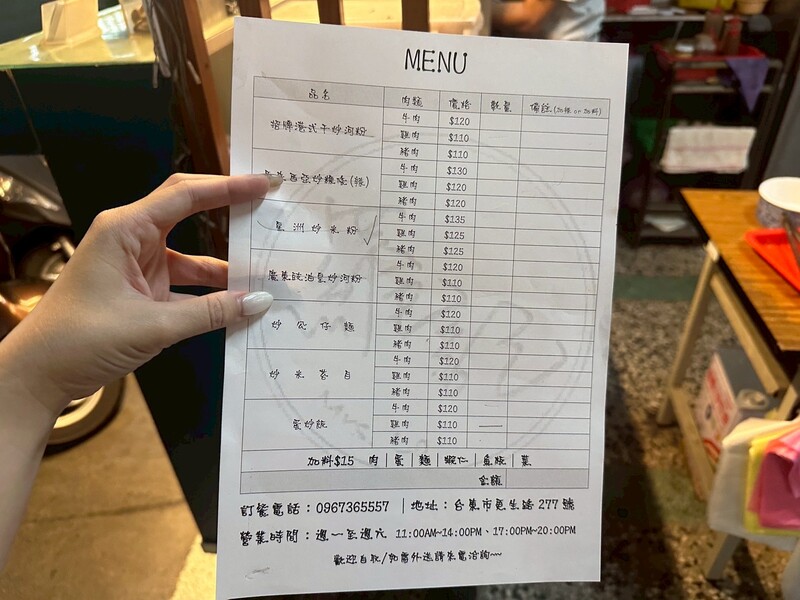 MENU
品名 肉類 價格 數量 備註(加辣 or 加料)
招牌港式干炒河粉 牛肉 $120
雞肉 $110
豬肉 $110
炒粿條(辣) 牛肉 $130
雞肉 $120
豬肉 $120
星洲炒米粉 牛肉 $135
雞肉 $125
豬肉 $125
廣東豉油皇炒河粉 牛肉 $120
雞肉 $110
豬肉 $110
炒公仔麵 牛肉 $120
雞肉 $110
豬肉 $110
炒米苔目 牛肉 $120
雞肉 $110
豬肉 $110
蛋炒飯 牛肉 $120
雞肉 $110
豬肉 $110
加料$15 肉 | 蛋 | 麵 | 蝦仁 | 魚板 | 菜
金額
訂餐電話:0967365557 | 地址:台東市更生路 277 號
營業時間:週一至週六 11:00AM~14:00PM、17:00PM~20:00PM
歡迎自取/如需外送請來電洽詢~~